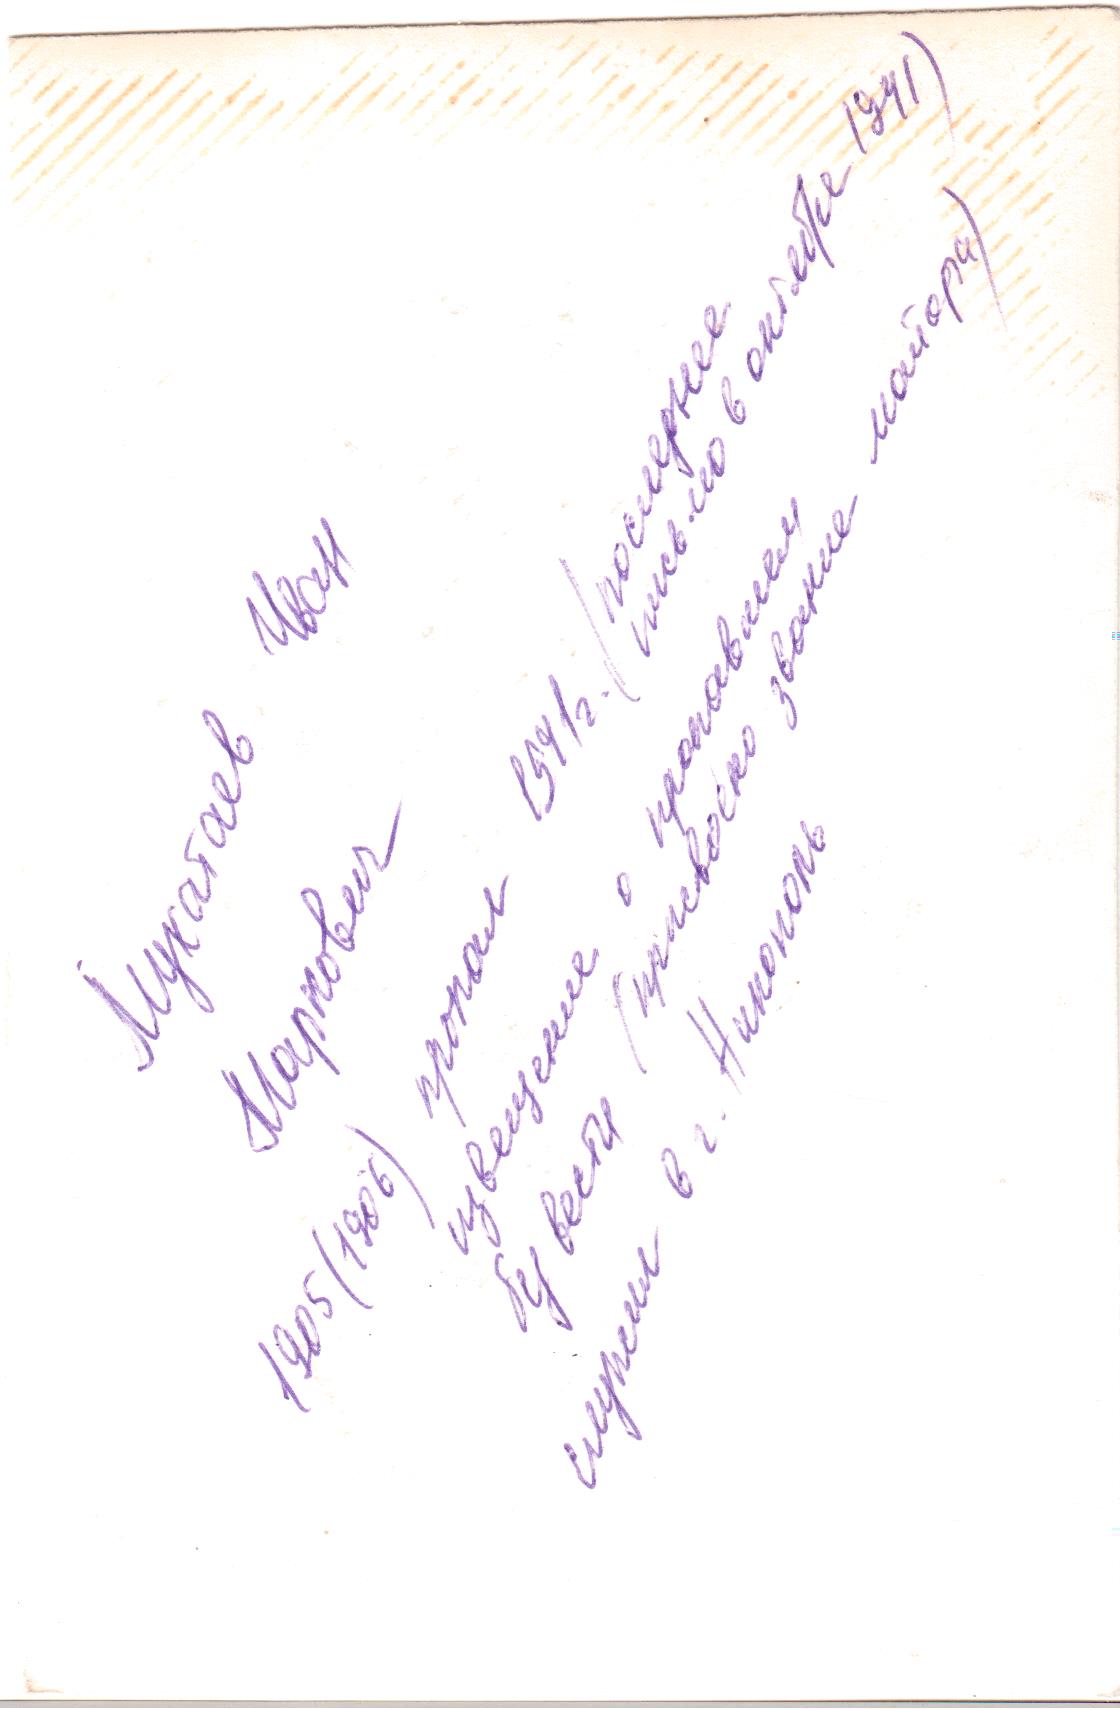 Мукатаев Иван
Маркович
1905 (1906) пропал 1941 г. (последнее
письмо в октябре 1941)
извещение о пропавшем
без вести (присвоено звание майора)
служил в г. Никополь